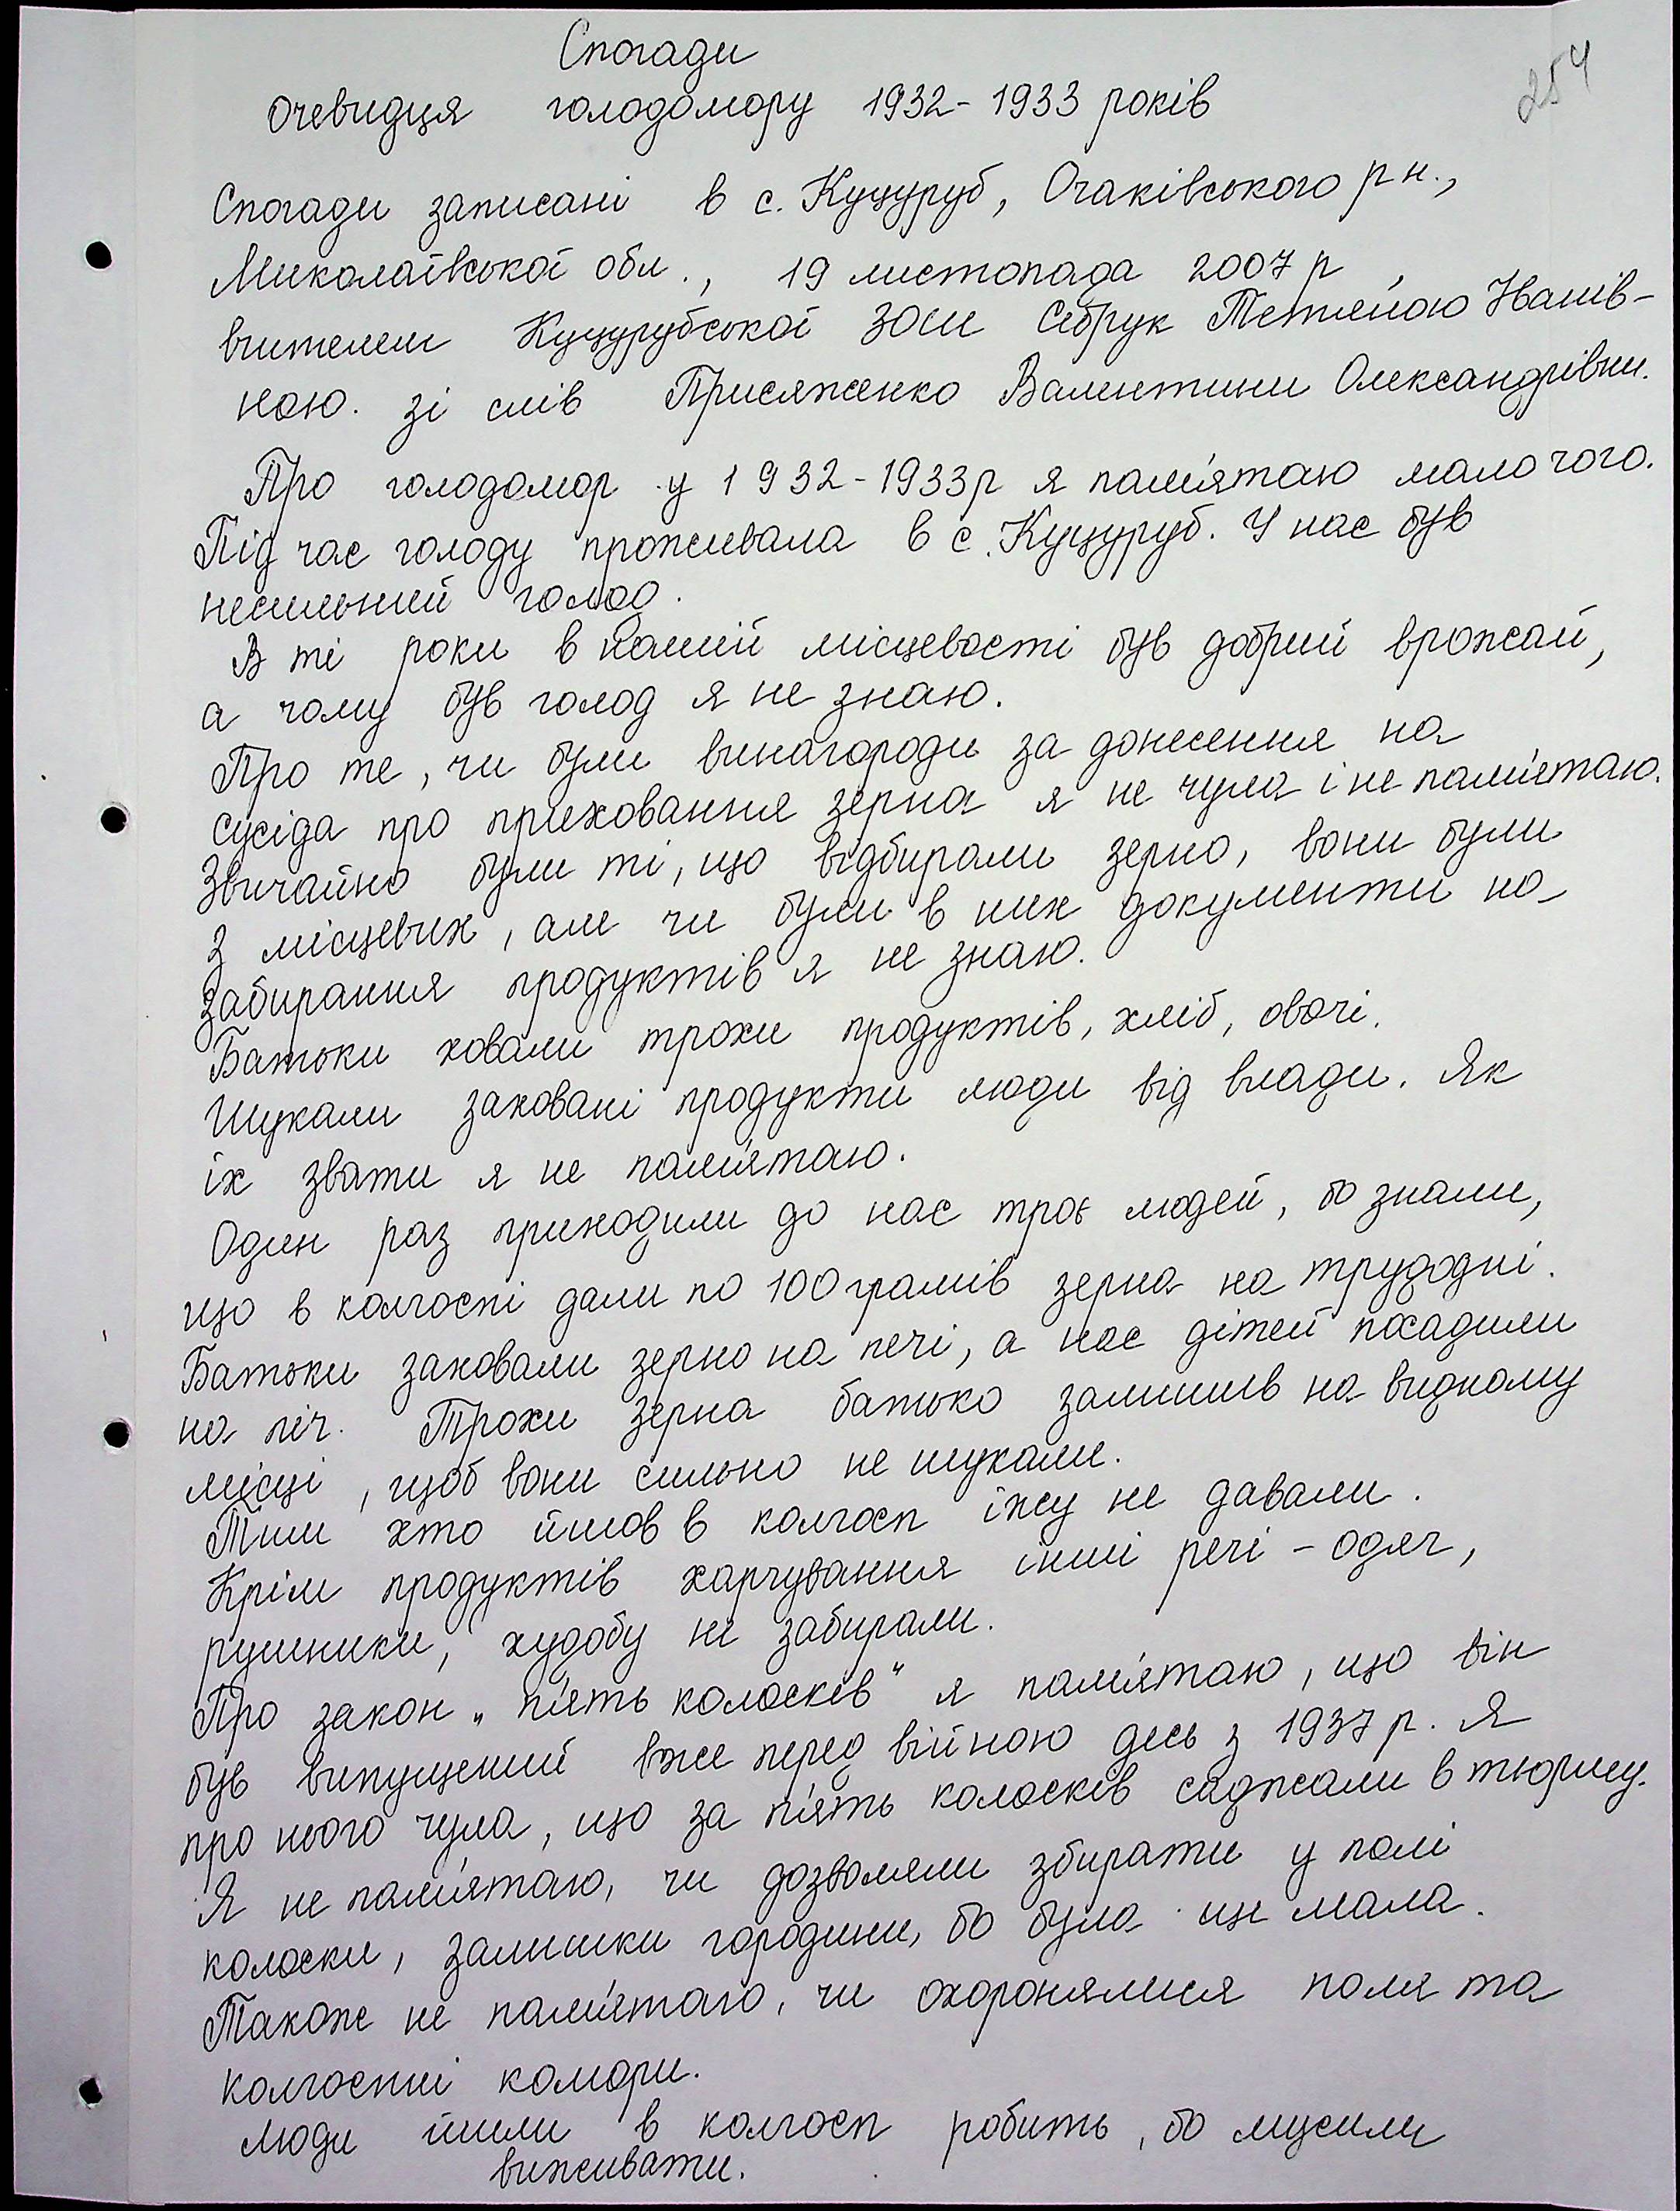 Спогади
254
очевидця голодомору 1932-1933 років
Спогади записані в с. Куцуруб, Очаківського р н.,
Миколаївської обл., 19 листопада 2007 р,
вчителем Куцурубської ЗОШ Сібрук Тетяною Іванів-
ною. зі слів Присяженко Валентини Олександрівни.
Про голодомор у 1932-1933р я пам'ятаю мало чого.
Під час голоду проживала в с. Куцуруб. У нас був
несильний голод.
В ті роки в нашій місцевості був добрий врожай,
а чому був голод я не знаю.
Про те, чи були винагороди за донесення на
сусіда про приховання зерна я не чула і не пам'ятаю.
Звичайно були ті, що відбирали зерно, вони були
з місцевих, але чи були в них документи на
забирання продуктів я не знаю.
Батьки ховали трохи продуктів, хліб, овочі.
Шукали заховані продукти люди від влади. Як
їх звати я не пам'ятаю.
Один раз приходили до нас троє людей, бо знали,
що в колгоспі дали по 100 грамів зерна на трудодні.
Батьки заховали зерно на печі, а нас дітей посадили
на піч. Трохи зерна батько залишив на видному
місці, щоб вони сильно не шукали.
Тим хто йшов в колгосп їжу не давали.
Крім продуктів харчування інші речі - одяг,
рушники, худобу не забирали.
Про закон „п'ять колосків" я пам'ятаю, що він
був випущений вже перед війною десь з 1937 р. Я
про нього чула, що за п'ять колосків саджали в тюрму.
Я не пам'ятаю, чи дозволяли збирати у полі
колоски, залишки городини, бо була ще мала.
Також не пам'ятаю, чи охоронялися поля та
колгоспні комори.
Люди йшли в колгосп робить, бо мусили
виживати.